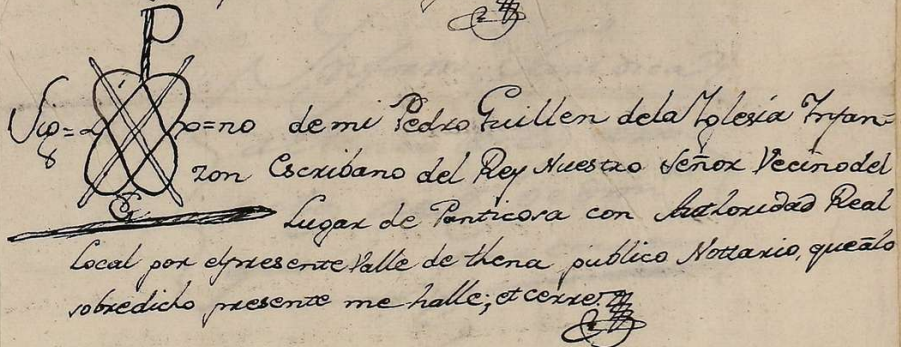 Sig=no de mi Pedro Guillen dela Iglesia Infan=
zon Escribano del Rey Nuestro Señor Vecino del
Lugar de Panticosa con Authoridad Real
Local por el presente Valle de thena publico Nottario, que alo
sobredicho presente me halle; et cerre.